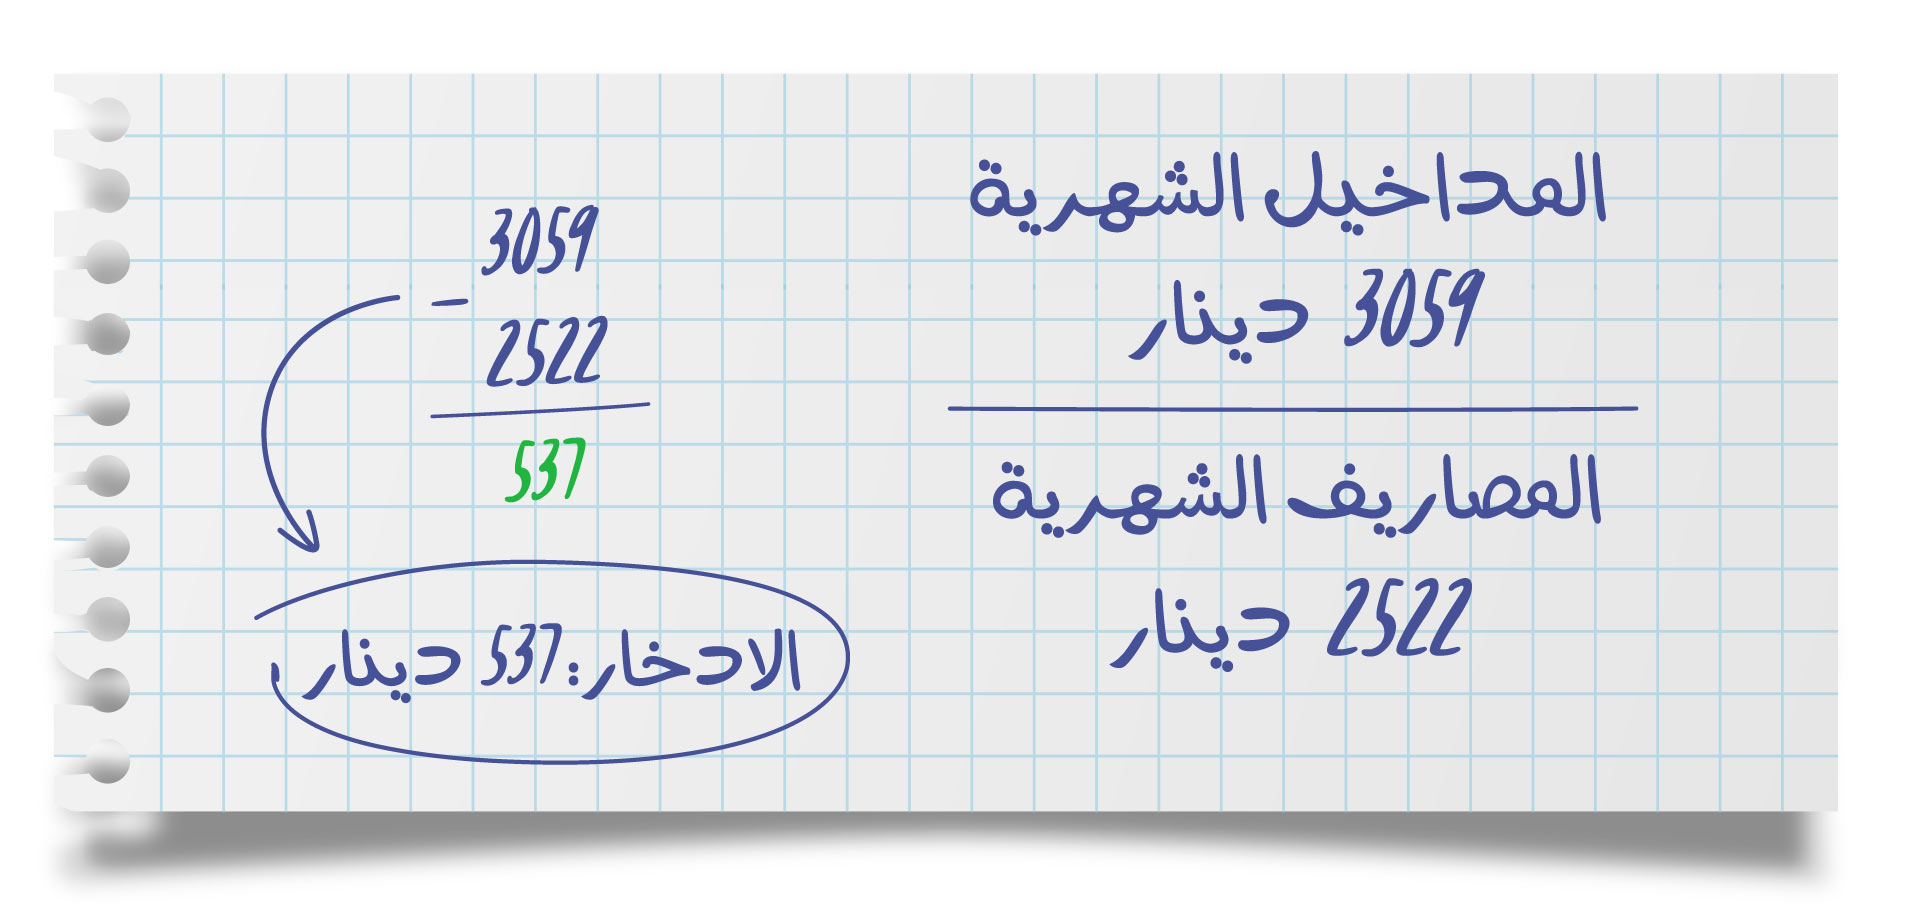 المداخيل الشهرية
3059 دينار
المصاريف الشهرية
2522 دينار
3059
–
2522
537
الادخار: 537 دينار